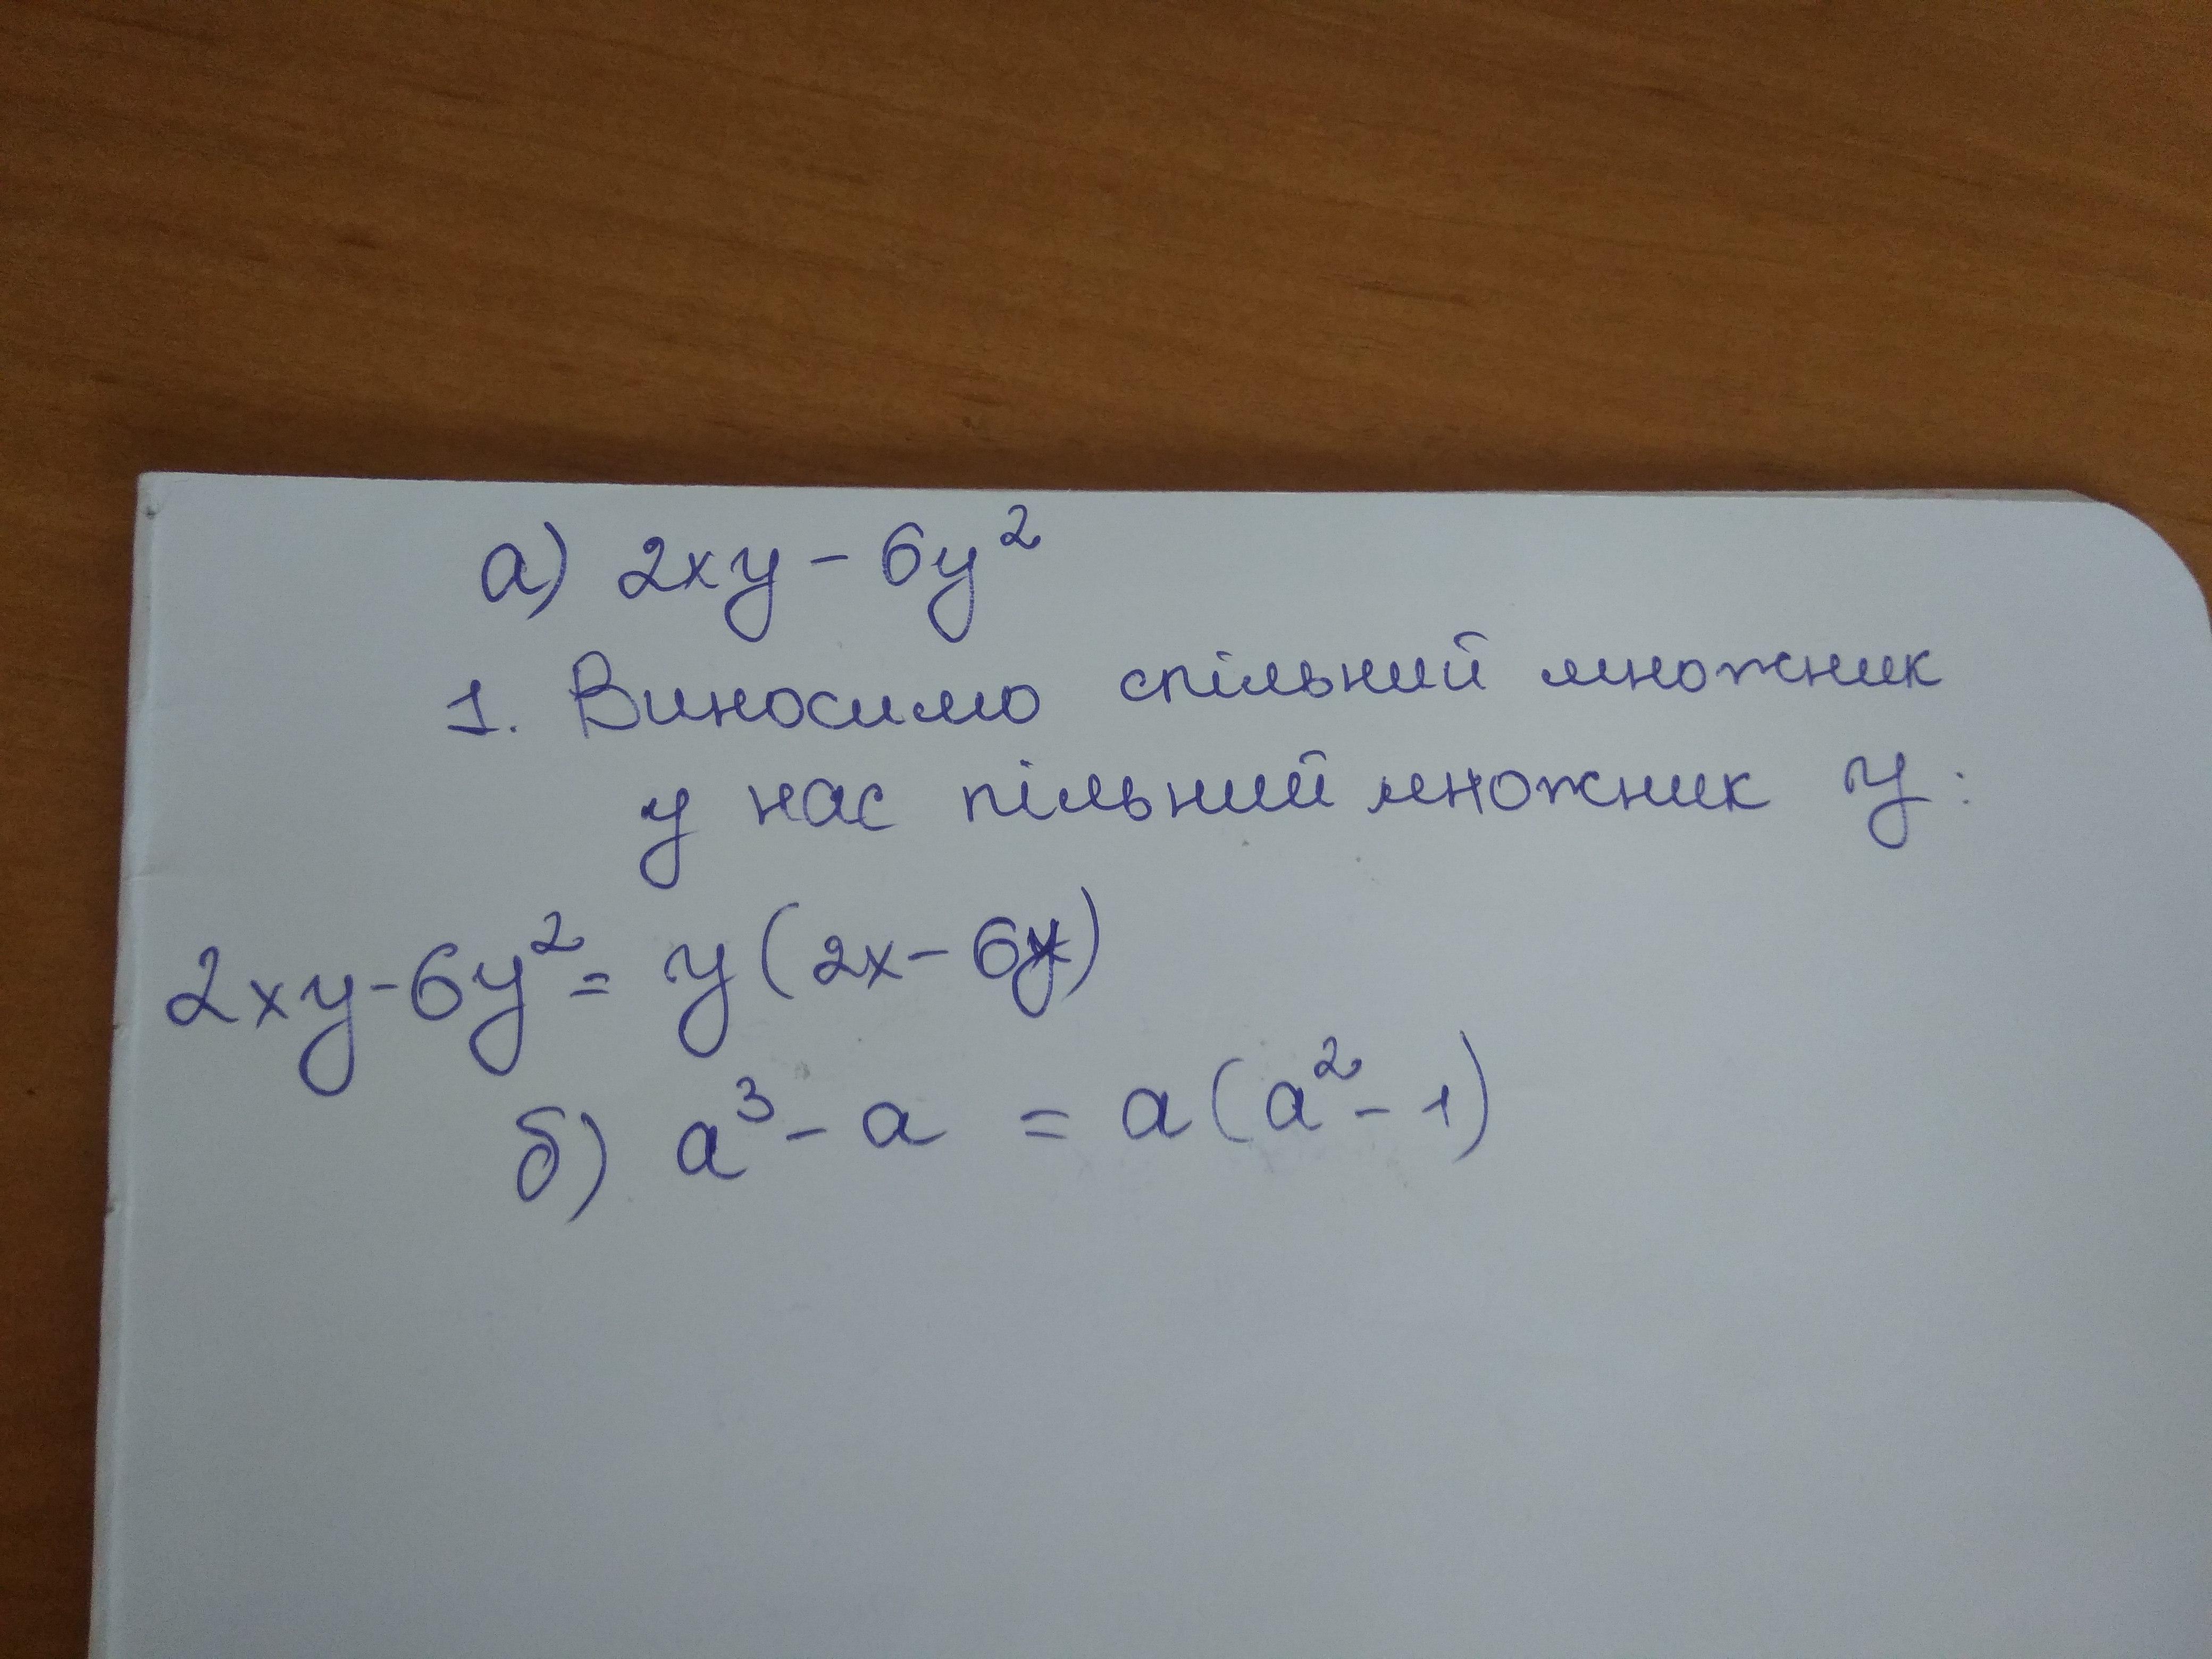 а) 2xy - 6y²
1. Виносимо спільний множник
у нас пільний множник y:
2xy - 6y² = y(2x - 6y)
б) a³ - a = a(a² - 1)